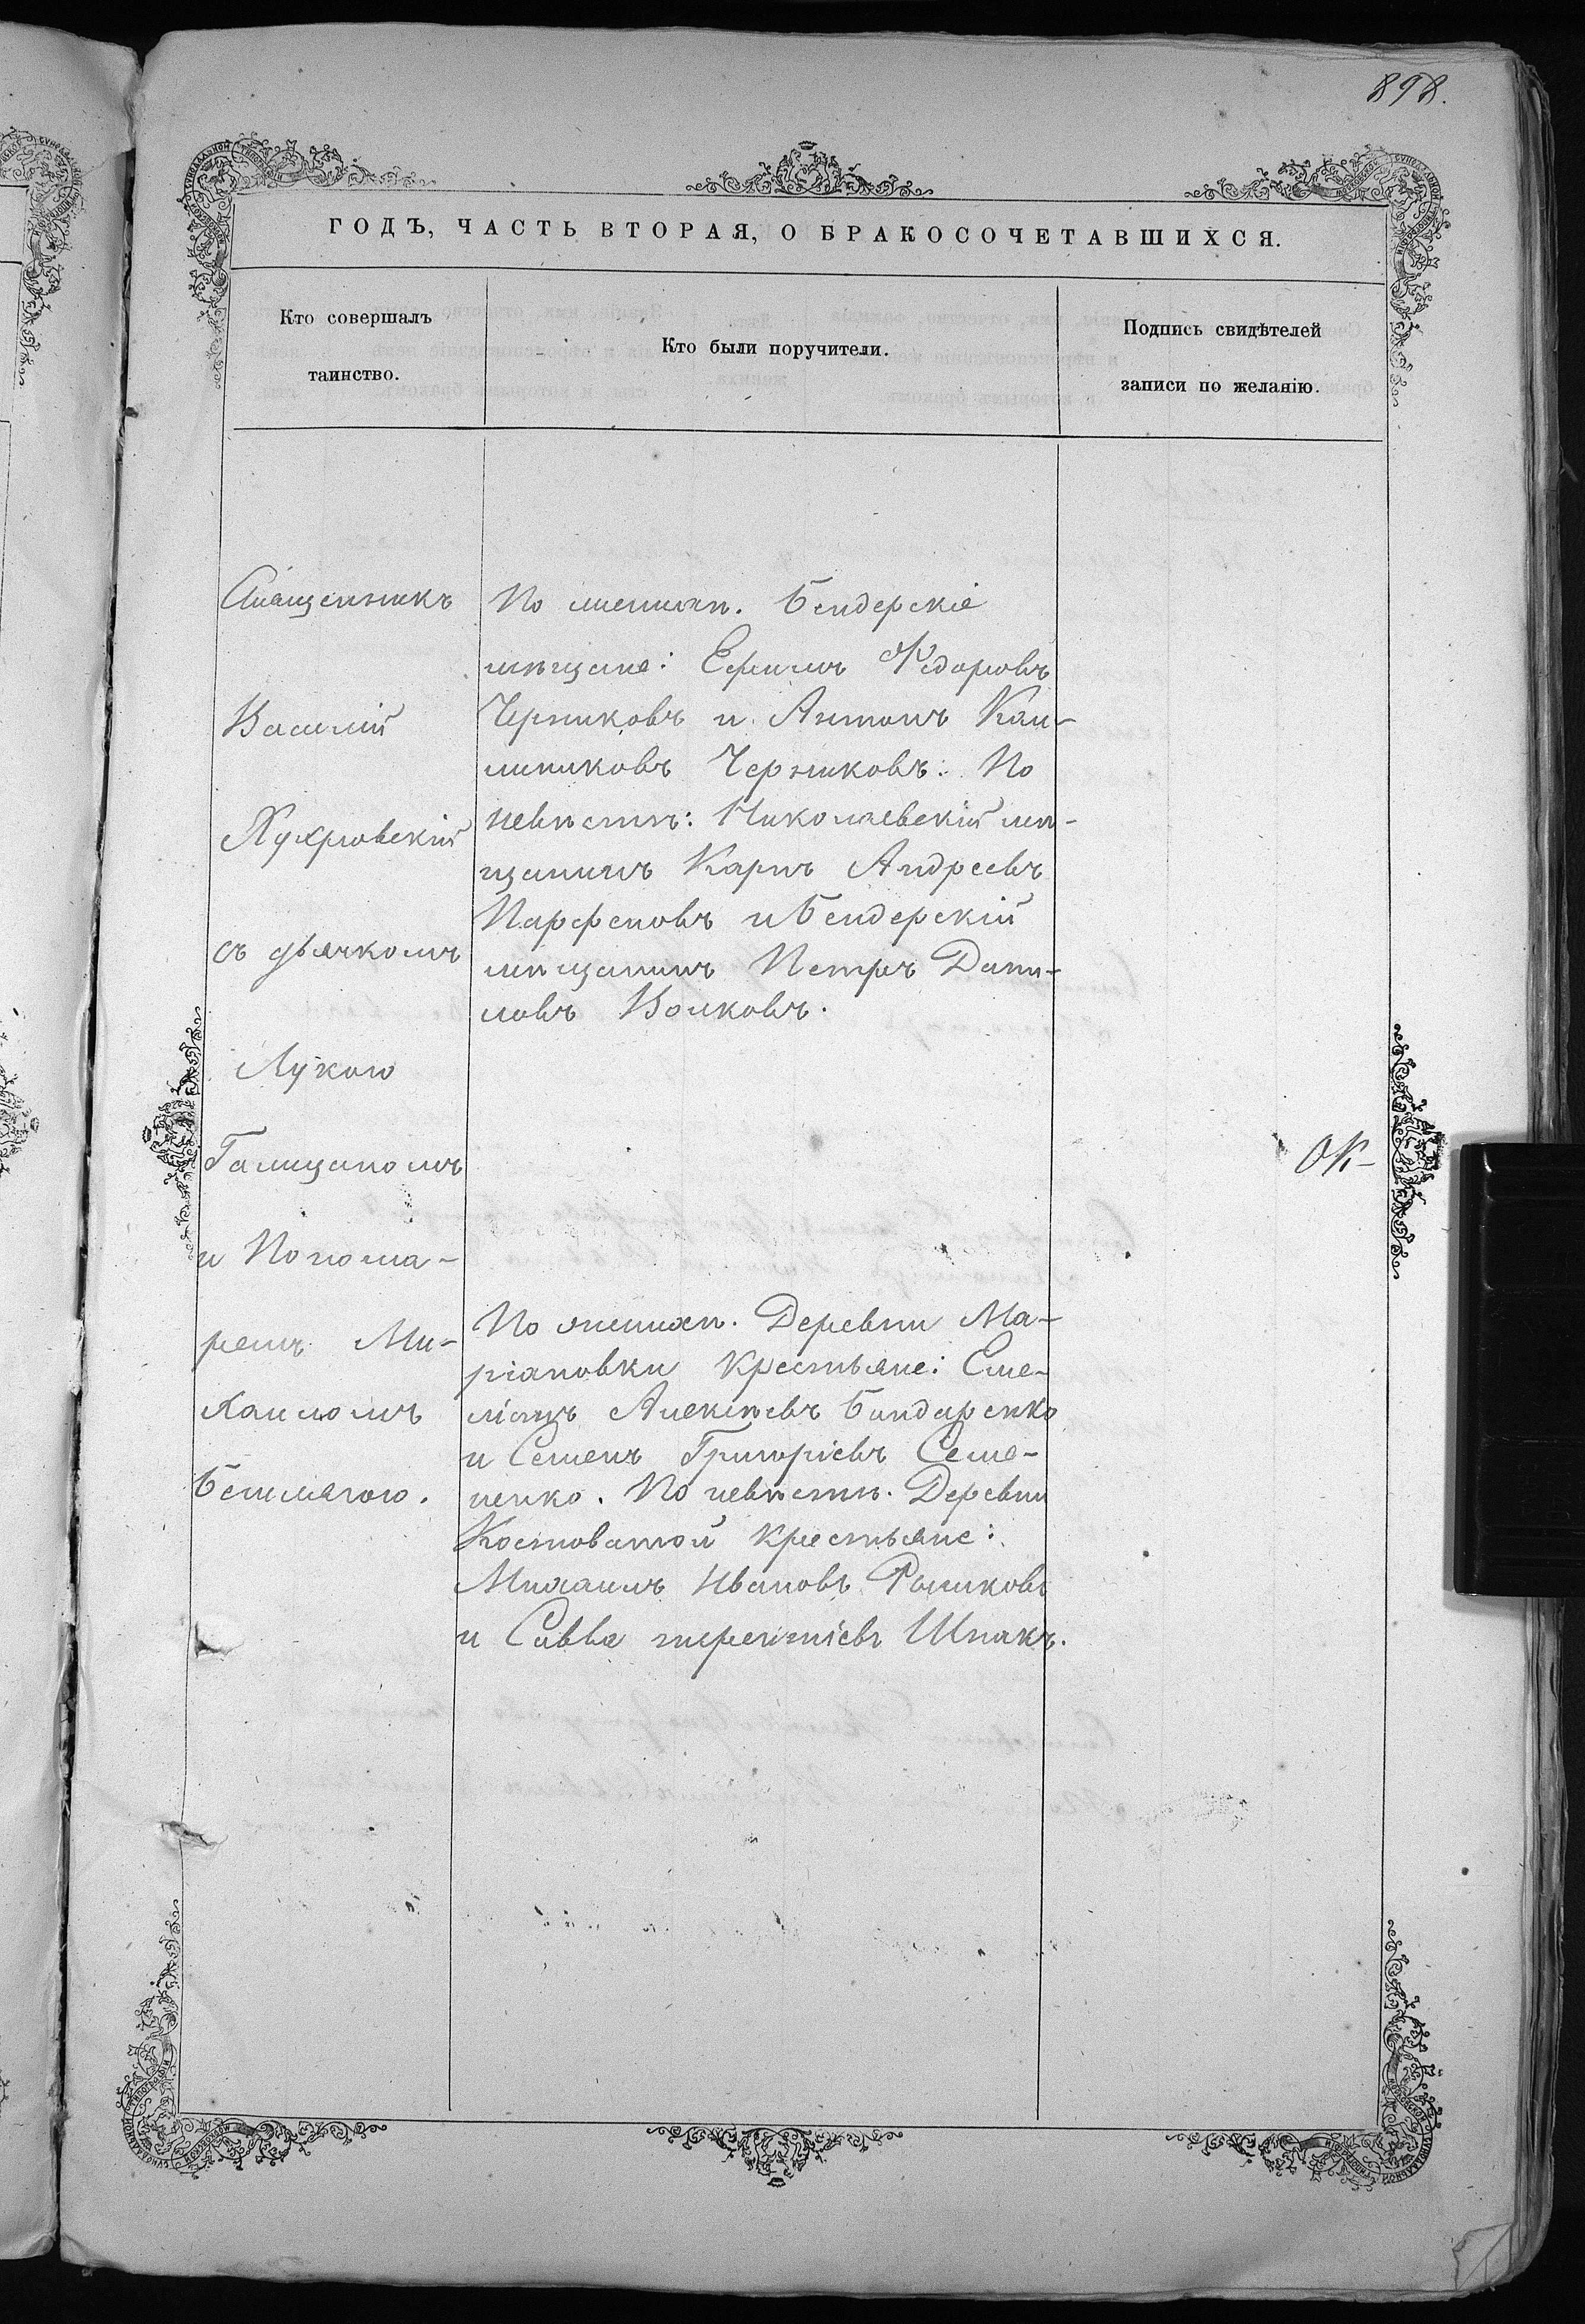 898.
ГОДЪ, ЧАСТЬ ВТОРАЯ, О БРАКОСОЧЕТАВШИХСЯ.
Кто совершалъ
таинство.
Кто были поручители.
Подпись свидѣтелей
записи по желанію.
Священникъ
Василій
съ дьячкомъ
Лукою
Галицаномъ
и Понома-
ремъ Ми-
хаиломъ
По женихѣ. Бендерскіе
мѣщане: Ефимъ Ѳедоровъ
Черниковъ и Антонъ
Черниковъ: По
невѣстѣ: Николаевскій мѣ-
щанинъ Карпъ Андреевъ
Парфеновъ и Бендерскій
мѣщанинъ Петръ Дани-
ловъ Волковъ.
По женихѣ. Деревни Ма-
ріановки крестьяне: Еме-
ліанъ Алексѣевъ Бондаренко
и Семенъ Григоріевъ Семе-
ненко. По невѣстѣ. Деревни
Костоватой крестьяне:
Михаилъ Ивановъ
и Савва терентіевъ Шпакъ.
ОК-